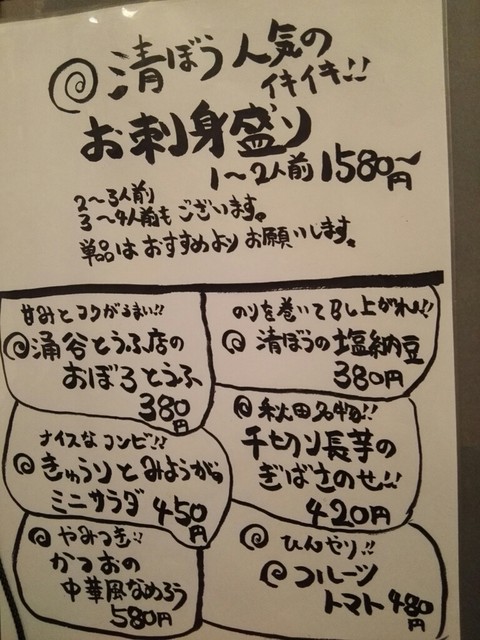 清ぼう人気の
イキイキ!!
お刺身盛り
1〜2人前 1580円〜
2〜3人前
3〜4人前もございます。
単品はおすすめよりお願いします。
甘みとコクがうまい!!
涌谷とうふ店の
おぼろとうふ
380円
のりを巻いて召し上がれ!!
清ぼうの塩納豆
380円
ナイスなコンビ!!
きゅうりとみょうがの
ミニサラダ 450円
秋田名物!!
千切り長芋の
ぎばさのせ!!
420円
やみつき!!
かつおの
中華風なめろう
580円
ひんやり!!
フルーツ
トマト 480円